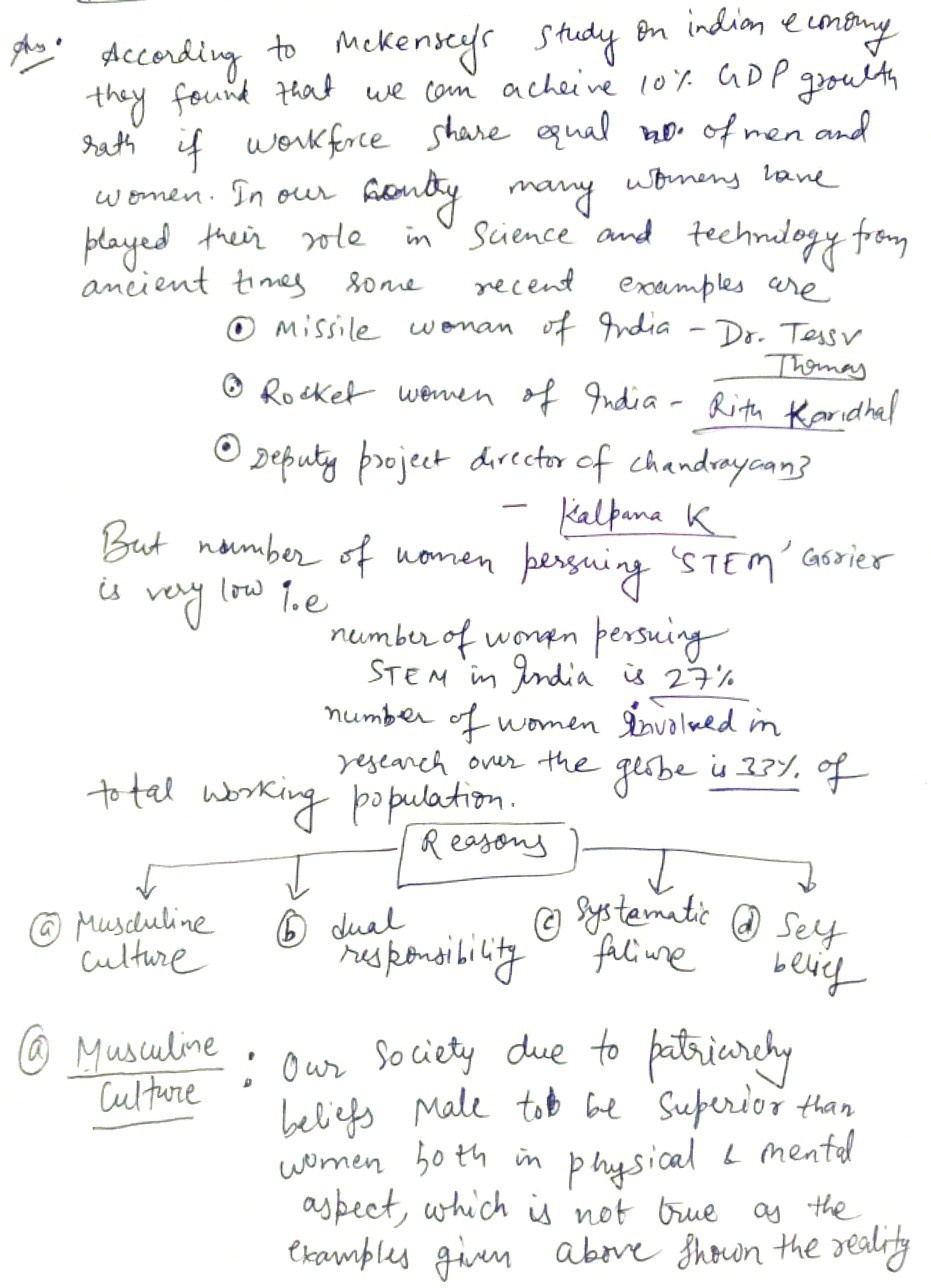 Ans. According to Mckensey's study on indian economy
they found that we can acheive 10% GDP growth
rath if workforce share equal no. of men and
women. In our country many womens have
played their role in science and technology from
ancient times some recent examples are
Missile woman of India - Dr. Tessy
Thomas
Rocket women of India - Ritu Karidhal
Deputy project director of chandrayaan3
- Kalpana K
But number of women persuing 'STEM' Carier
is very low i.e
number of women persuing
STEM in India is 27%
number of women involved in
research over the globe is 33% of
total working population.
Reasons
(a) Musculine (b) dual (c) Systematic (d) Self
culture responsibility faliure belief
(a) Musculine
Culture : Our society due to patriarchy
beliefs Male to be superior than
women both in physical & mental
aspect, which is not true as the
examples given above shown the reality